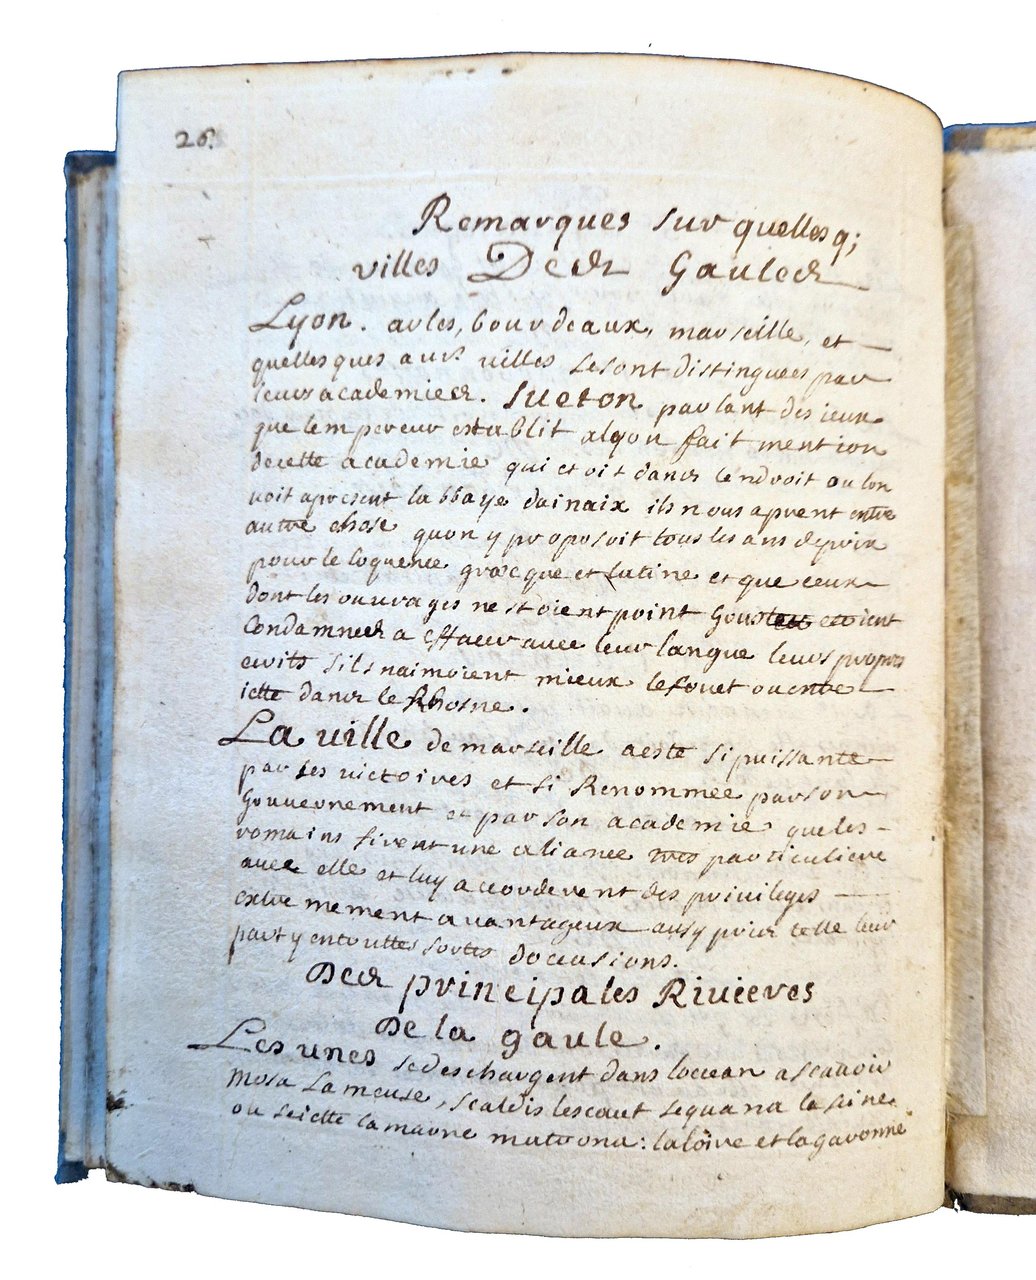 26.
Remarques sur quellesq;
villes Des Gaules
Lyon. arles, bourdeaux, marseille, et
quellesques aurs villes sesont distinguees par
leurs academies. Sueton parlant des ieux
que lempereur establit alyon fait mention
decette academie qui etoit dans lendroit ou lon
voit apresent labbaye dainaix ils nous aprent entre
autre chose quon y proposoit tous les ans deprix
pour leloquence græcque et latine et que ceux
dont les ouvrages nestoient point goustes etoient
Condamnes a effacer avec leur langue leurs propres
ecrits sils naimoient mieux lefouet ouentre
iette dans le Rhosne.
La ville de marseille aeste sipuissante
par ses victoires et si Renommée parson
gouvernement et par son academie queles
romains firent une aliance tres particuliere
avec elle et luy accorderent des privileges
extremement avantageux ausy prirt celle leur
party entouttes sortes doccasions.
Des principales Rivieres
De la gaule.
Les unes sedeschargent dans locean ascavoir
Mosa La meuse, scaldis lescaut sequana la seine
ou seiette la marne matrona: laloire et lagaronne